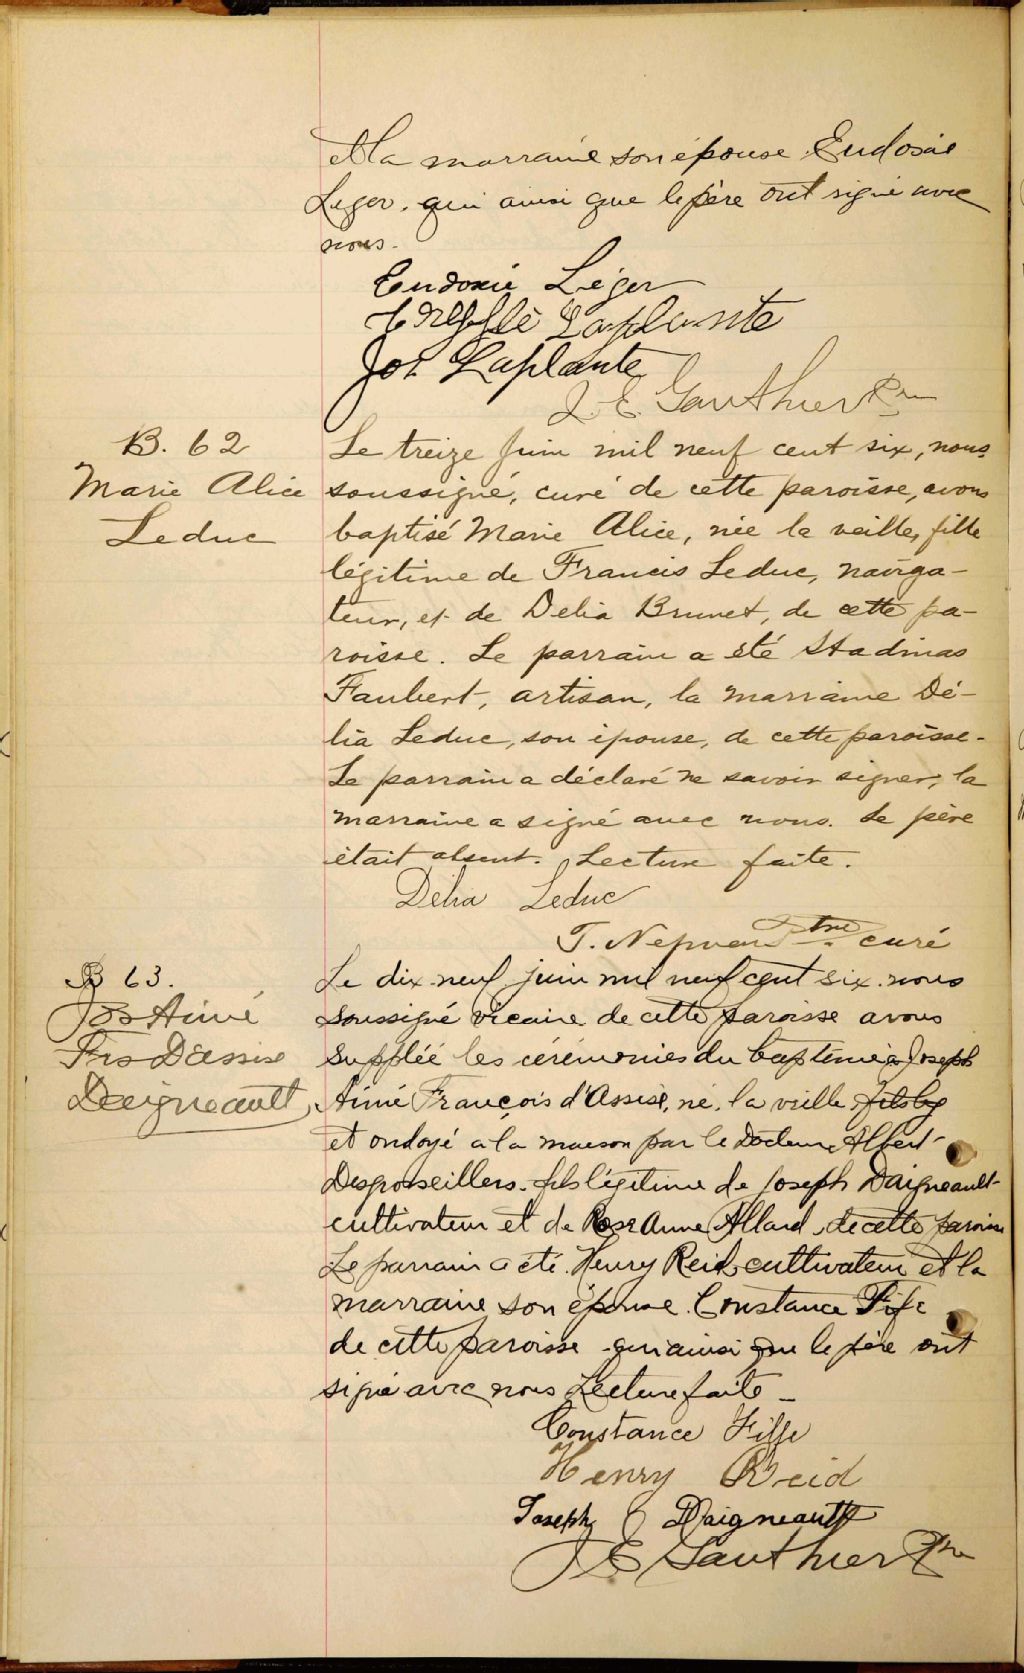 et la marraine son épouse Eudoxie
Leger. qui ainsi que le père ont signé avec
nous.
Eudoxie Léger
Trefflé Laplante
Jos. Laplante
J. E. Gauthier Ptre
B. 62
Marie Alice
Leduc
Le treize Juin mil neuf cent six, nous
soussigné, curé de cette paroisse, avons
baptisé Marie Alice, née la veille, fille
légitime de Francis Leduc, naviga-
teur, et de Delia Brunet, de cette pa-
roisse. Le parrain a été Stadinas
Faubert, artisan, la marraine Dé-
lia Leduc, son épouse, de cette paroisse.
Le parrain a déclaré ne savoir signer, la
marraine a signé avec nous. Le père
était absent. Lecture faite.
Délia Leduc
T. Nepveu Ptre curé
B 63.
Jos Aimé
Frs D'assise
Daigneault
Le dix-neuf juin mil neuf cent six nous
soussigné vicaire de cette paroisse avons
suppléé les cérémonies du baptême à Joseph
Aimé François d'Assise, né la veille fils leg
et ondoyé à la maison par le Docteur Albert
Desgroseillers. fils légitime de Joseph Daigneault
cultivateur et de Rose Anne Allard de cette paroisse
Le parrain a été Henry Reid cultivateur et la
marraine son épouse Constance Fife
de cette paroisse qui ainsi que le père ont
signé avec nous Lecture faite_
Constance Fiffe
Henry Reid
Joseph Daigneault
J E Gauthier Ptre